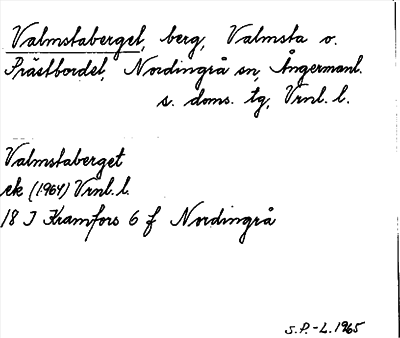 Valmstaberget, berg, Valmsta o.
Prästbordet, Nordingrå sn, Ångermanl.
s. doms. tg, Vrnl. l.
Valmstaberget
ek (1964) Vrnl. l.
18 I Kramfors 6 f Nordingrå
S.P.-L. 1965